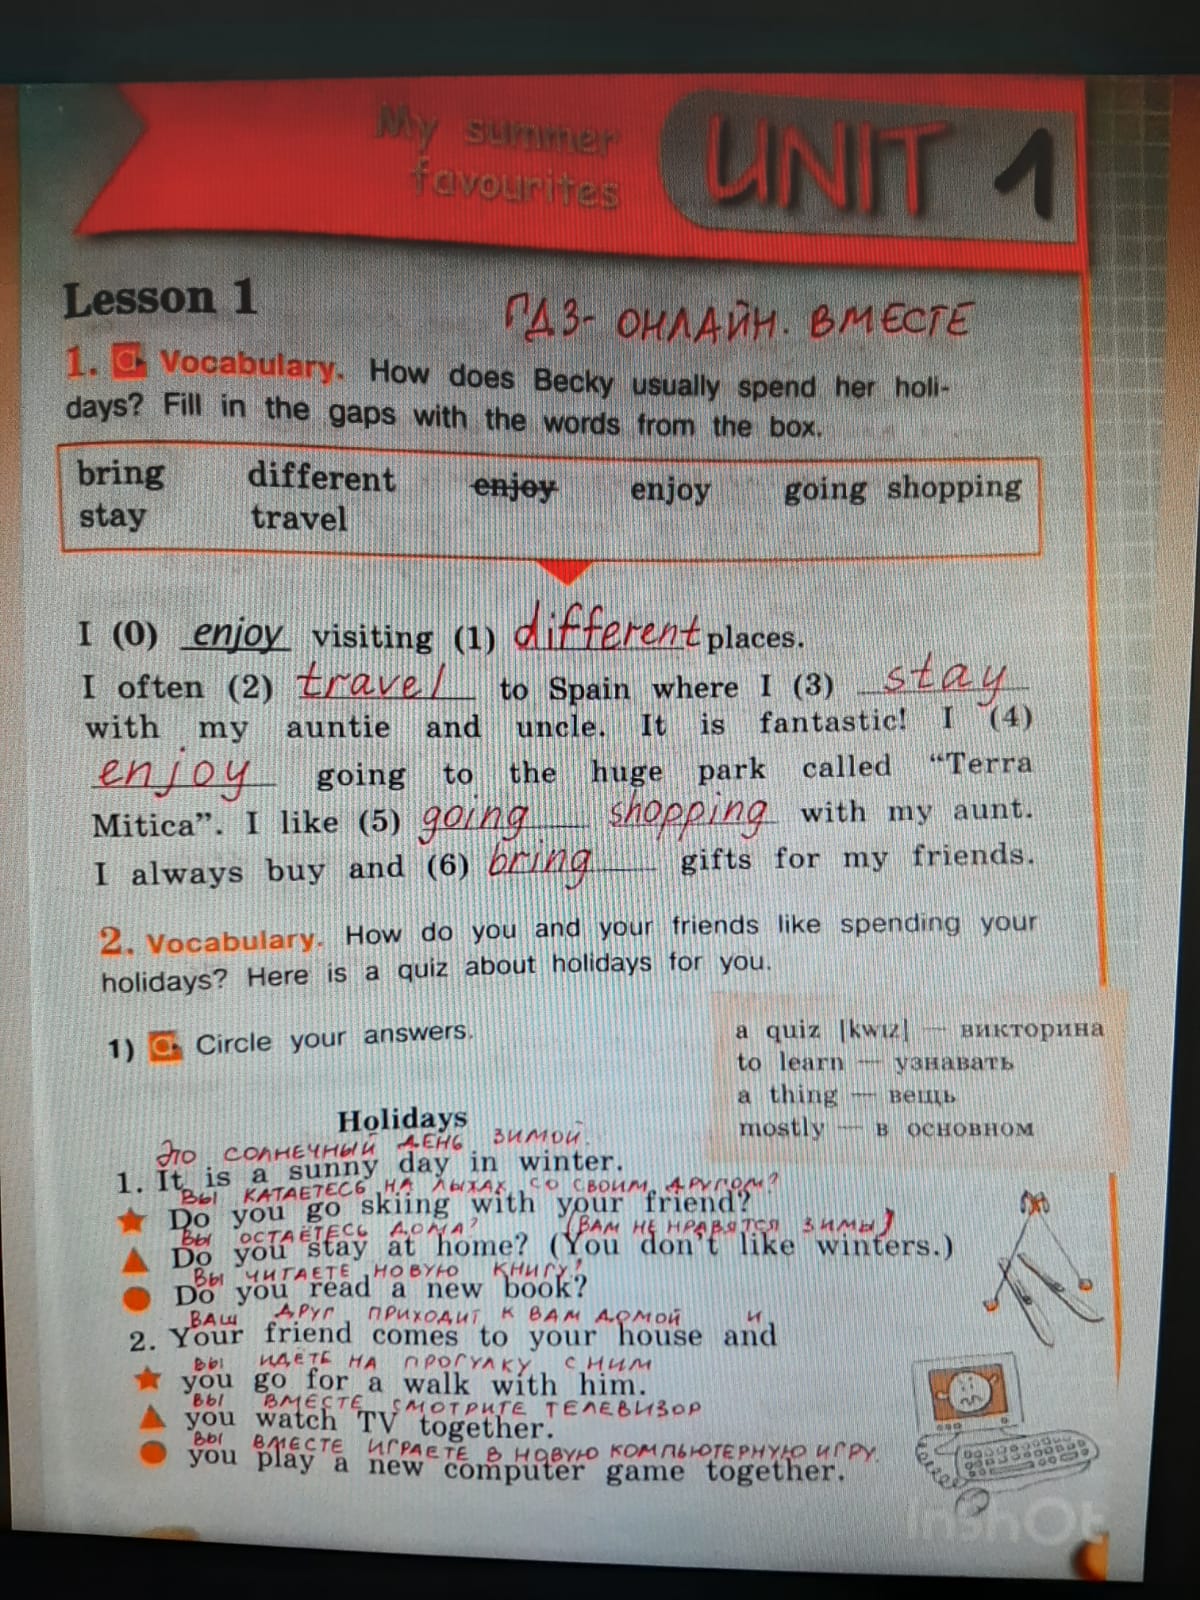 My summer
favourites
UNIT 1
Lesson 1
ГДЗ- ОНЛАЙН. ВМЕСТЕ
1. Vocabulary. How does Becky usually spend her holi-
days? Fill in the gaps with the words from the box.
bring different enjoy enjoy going shopping
stay travel
I (0) enjoy visiting (1) different places.
I often (2) travel to Spain where I (3) stay
with my auntie and uncle. It is fantastic! I (4)
enjoy going to the huge park called “Terra
Mitica”. I like (5) going shopping with my aunt.
I always buy and (6) bring gifts for my friends.
2. Vocabulary. How do you and your friends like spending your
holidays? Here is a quiz about holidays for you.
1) Circle your answers.
a quiz [kwɪz] — викторина
to learn — узнавать
a thing — вещь
mostly — в основном
Holidays
ЭТО СОЛНЕЧНЫЙ ДЕНЬ ЗИМОЙ.
1. It is a sunny day in winter.
ВЫ КАТАЕТЕСЬ НА ЛЫЖАХ СО СВОИМ ДРУГОМ?
Do you go skiing with your friend?
ВЫ ОСТАЁТЕСЬ ДОМА? (ВАМ НЕ НРАВЯТСЯ ЗИМЫ)
Do you stay at home? (You don't like winters.)
ВЫ ЧИТАЕТЕ НОВУЮ КНИГУ?
Do you read a new book?
ВАШ ДРУГ ПРИХОДИТ К ВАМ ДОМОЙ И
2. Your friend comes to your house and
ВЫ ИДЕТЕ НА ПРОГУЛКУ С НИМ
you go for a walk with him.
ВЫ ВМЕСТЕ СМОТРИТЕ ТЕЛЕВИЗОР
you watch TV together.
ВЫ ВМЕСТЕ ИГРАЕТЕ В НОВУЮ КОМПЬЮТЕРНУЮ ИГРУ.
you play a new computer game together.
InshOt